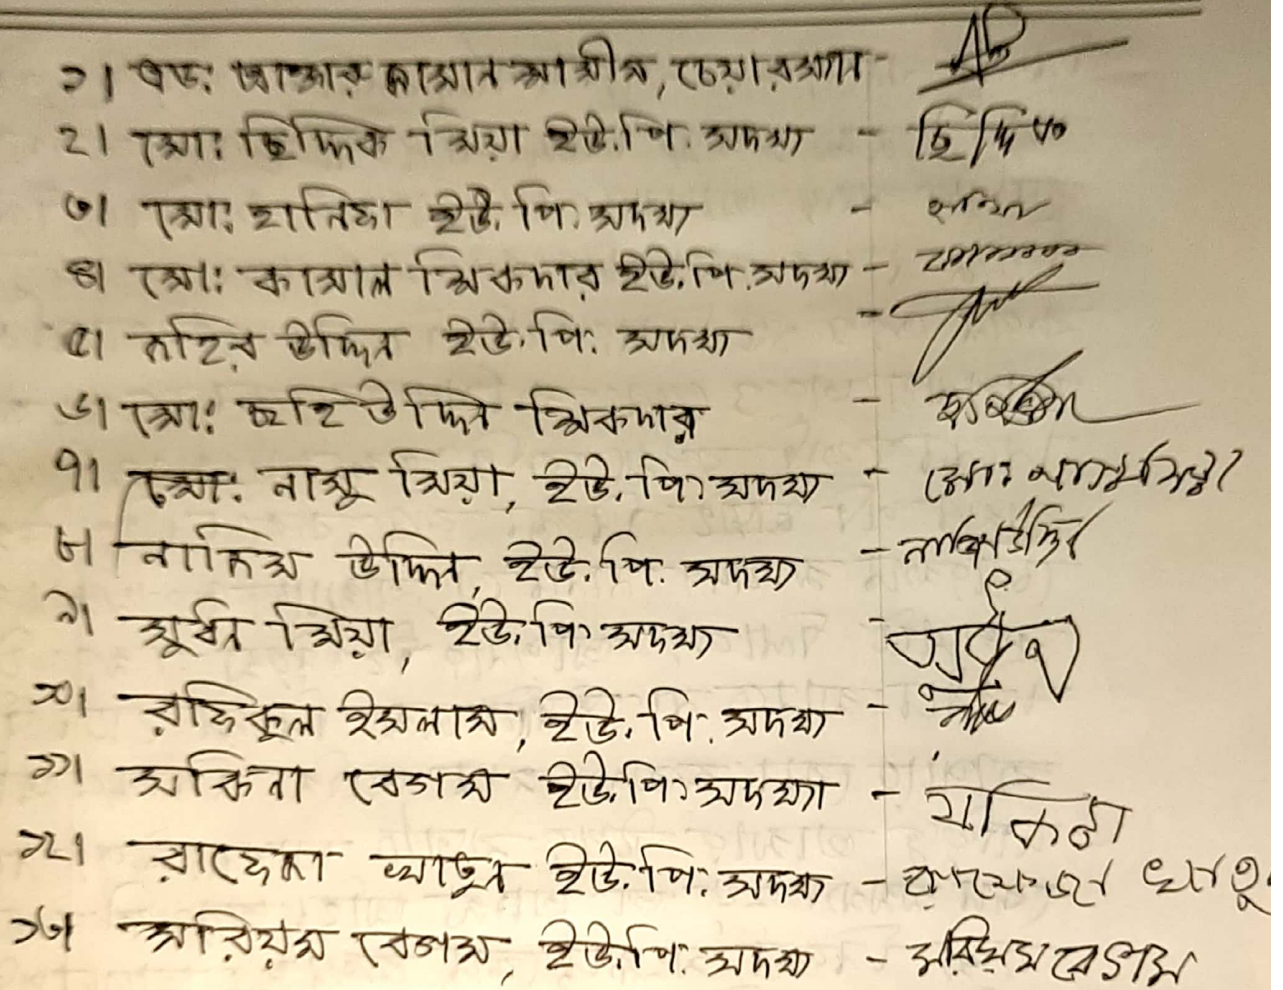 ১। এড: জামান আমীন, চেয়ারম্যান -
২। মো: ছিদ্দিক মিয়া ইউ.পি. সদস্য - ছিদ্দিক
৩। মো: হানিফা ইউ.পি. সদস্য -
৪। মো: কামাল সিকদার ইউ.পি. সদস্য -
৫। জহির উদ্দিন ইউ.পি. সদস্য -
৬। মো: মহিউদ্দিন সিকদার -
৭। মো: নাসু মিয়া, ইউ.পি. সদস্য - মোঃ
৮। নাজিম উদ্দিন, ইউ.পি. সদস্য -
৯। মিয়া, ইউ.পি. সদস্য -
১০। রফিকুল ইসলাম, ইউ.পি. সদস্য -
১১। সকিনা বেগম ইউ.পি. সদস্যা - সকিনা
১২। রাহেলা খাতুন ইউ.পি. সদস্য - খাতু
১৩। মরিয়ম বেগম, ইউ.পি. সদস্য - মরিয়ম বেগম